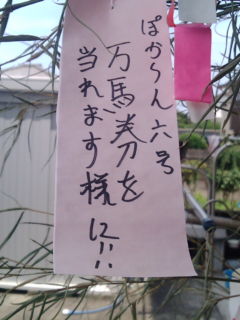 ぽからん六号
万馬券を
当れます様に!!